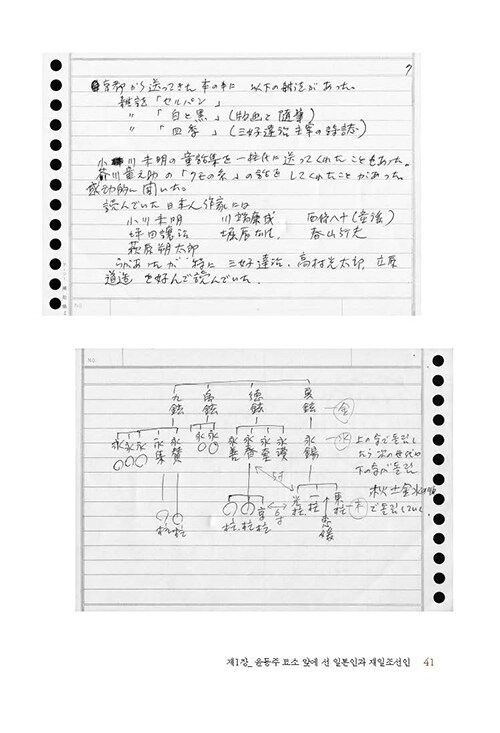 7
京都から送ってきた本の中に 以下の雑誌があった。
雑誌「セルパン」
〃 「白と黒」(版画と随筆)
〃 「四季」(三好達治主宰の詩誌)
小川未明の童話集を一柱に送ってくれたこともあった。
芥川竜之助の「クモの糸」の話をしてくれたことがあった。
感動的に聞いた。
読んでいた日本人作家には
小川未明 川端康成 西條八十(童謡)
坪田譲治 堀辰雄 春山行夫
萩原朔太郎
らがあったが 特に三好達治、高村光太郎、立原
道造を好んで読んでいた。
NO.
九鉉 禹鉉 德鉉 夏鉉 金
永 永 永 永東 永賛 永 永 永善 永春 永奎 永漢 永錫 水
上の名で
たら次の世代の
下の名が
木火土金水の順
柱 柱 柱 柱 亨柱 光柱 一柱 東柱 木
恵媛
제1장_윤동주 묘소 앞에 선 일본인과 재일조선인 41